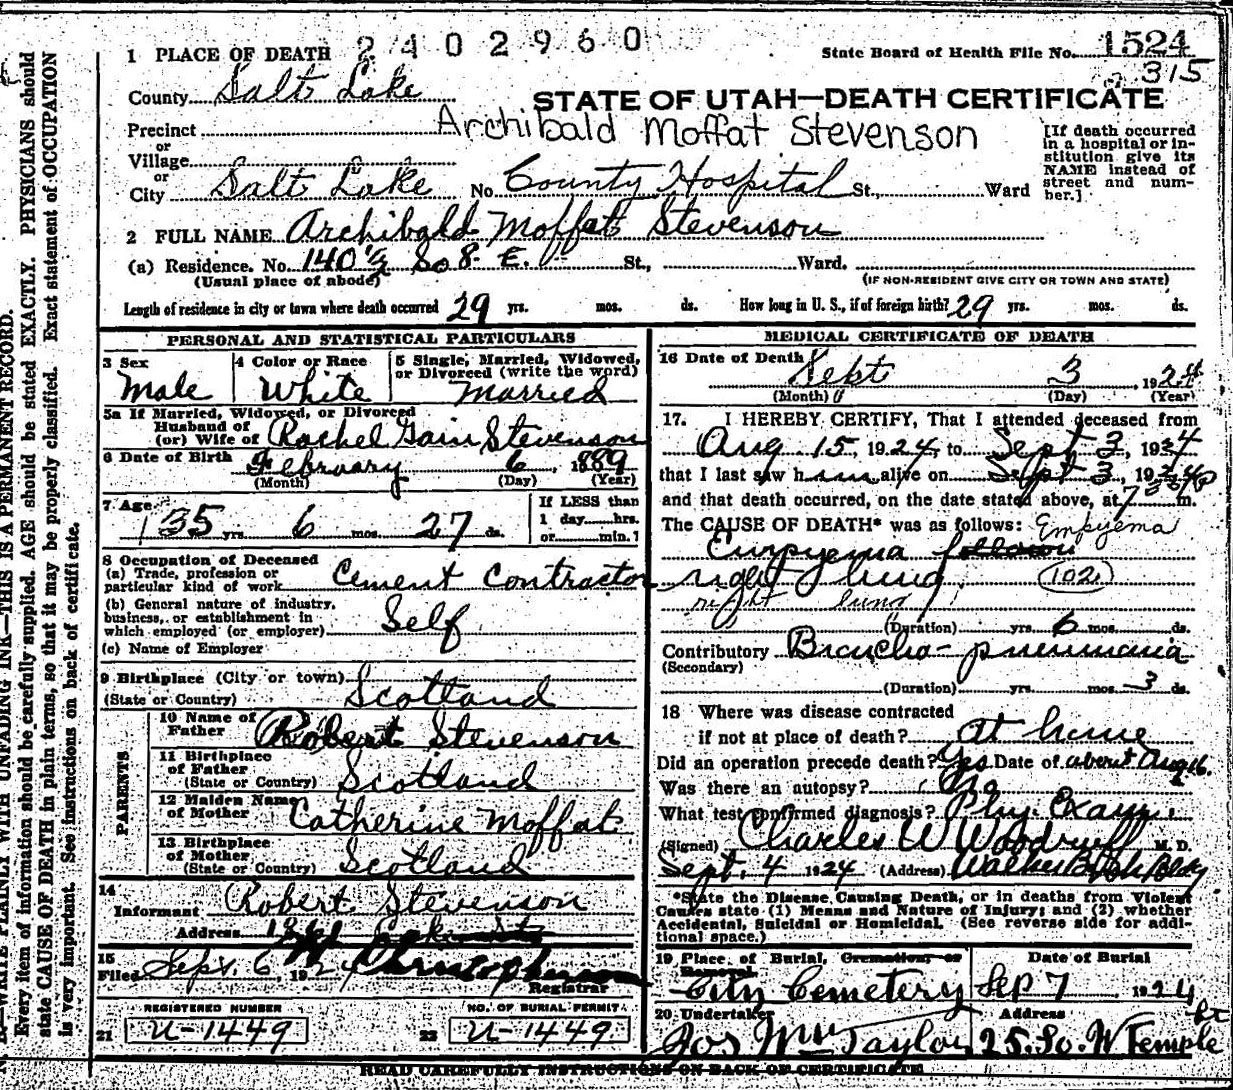 1 PLACE OF DEATH 2402960 State Board of Health File No. 1524
315
County Salt Lake
STATE OF UTAH—DEATH CERTIFICATE
Precinct Archibald Moffat Stevenson
or
Village
or
City Salt Lake No. County Hospital St., Ward
[If death occurred in a hospital or in-
stitution give its
NAME instead of
street and num-
ber.]
2 FULL NAME Archibald Moffat Stevenson
(a) Residence. No. 140 1/2 So 8. E. St., Ward.
(Usual place of abode) (IF NON-RESIDENT GIVE CITY OR TOWN AND STATE)
Length of residence in city or town where death occurred 29 yrs. mos. ds. How long in U. S., if of foreign birth? 29 yrs. mos. ds.
PERSONAL AND STATISTICAL PARTICULARS
3 Sex 4 Color or Race 5 Single, Married, Widowed,
or Divorced (write the word)
Male White Married
5a If Married, Widowed, or Divorced
Husband of
(or) Wife of Rachel Gain Stevenson
6 Date of Birth February 6, 1889
(Month) (Day) (Year)
7 Age 35 yrs. 6 mos. 27 ds.
If LESS than
1 day......hrs.
or......min.?
8 Occupation of Deceased
(a) Trade, profession or
particular kind of work Cement Contractor
(b) General nature of industry,
business, or establishment in
which employed (or employer) Self
(c) Name of Employer
9 Birthplace (City or town)
(State or Country) Scotland
PARENTS
10 Name of
Father Robert Stevenson
11 Birthplace
of Father
(State or Country) Scotland
12 Maiden Name
of Mother Catherine Moffat
13 Birthplace
of Mother
(State or Country) Scotland
14
Informant Robert Stevenson
Address
15
Filed Sept. 6, 1924
Registrar
REGISTERED NUMBER NO. OF BURIAL PERMIT
21 U-1449 22 U-1449
MEDICAL CERTIFICATE OF DEATH
16 Date of Death Sept 3, 1924
(Month) (Day) (Year)
17. I HEREBY CERTIFY, That I attended deceased from
Aug 15, 1924, to Sept 3, 1924
that I last saw him alive on Sept 3, 1924
and that death occurred, on the date stated above, at 7 m.
The CAUSE OF DEATH* was as follows: Empyema
Empyema
right lung. 102
right lung
(Duration) yrs. 6 mos. ds.
Contributory Broncho-pneumonia
(Secondary)
(Duration) yrs. mos. 3 ds.
18 Where was disease contracted
if not at place of death? At home
Did an operation precede death? Yes. Date of about Aug 16.
Was there an autopsy? No
What test confirmed diagnosis? Phy. Exam.
(Signed) Charles W Woodruff M. D.
Sept. 4 1924 (Address) Walker Bldg
*State the Disease Causing Death, or in deaths from Violent
Causes state (1) Means and Nature of Injury; and (2) whether
Accidental, Suicidal or Homicidal. (See reverse side for addi-
tional space.)
19 Place of Burial, Cremation or
Removal Date of Burial
City Cemetery Sep 7 1924
20 Undertaker Address
Jos Wm Taylor 25. So. W Temple St
READ CAREFULLY INSTRUCTIONS ON BACK OF CERTIFICATE
WRITE PLAINLY WITH UNFADING INK—THIS IS A PERMANENT RECORD.
Every item of information should be carefully supplied. AGE should be stated EXACTLY. PHYSICIANS should
state CAUSE OF DEATH in plain terms, so that it may be properly classified. Exact statement of OCCUPATION
is very important. See instructions on back of certificate.